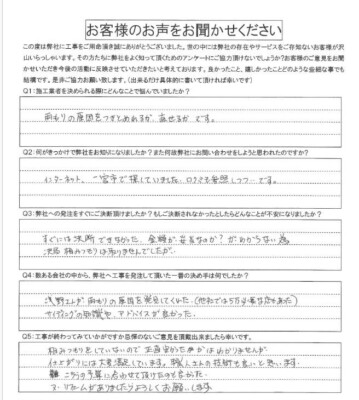 お客様のお声をお聞かせください
この度は弊社に工事をご用命頂き誠にありがとうございました。世の中には弊社の存在やサービスをご存知ないお客様が沢
山いらっしゃいます。その方たちに弊社をよく知って頂くためのアンケートにご協力頂けないでしょうか?お客様のご意見をお聞
かせいただき今後の活動に反映させていただきたいと考えております。良かったこと、嬉しかったことどのような些細な事でも
結構です。是非ご協力お願い致します。(出来るだけ具体的に書いて頂ければ幸いです)
Q1:施工業者を決められる際にどんなことで悩んでいましたか?
雨もりの原因をつきとめれるか、直せるか です。
Q2:何がきっかけで弊社をお知りになりましたか?また何故弊社にお問い合わせをしようと思われたのですか?
インターネット、 で探していました。 口コミを参照しつつ…です。
Q3:弊社への発注をすぐにご決断頂けましたか?もしご決断されなかったとしたらどんなことが不安になりましたか?
すぐには決断できなかった。金額が妥当なのか?がわからない為
決局 相みつもりは取りませんでしたが。
Q4:数ある会社の中から、弊社へ工事を発注して頂いた一番の決め手は何でしたか?
浅野さんが雨もりの原因を発見してくれた。
サイディングの知識や、アドバイスが良かった。
Q5:工事が終わってみていかがですか忌憚のないご意見を頂戴出来ましたら幸いです。
相みつもりをしていないので 正直 はわかりませんが
仕上がりには大変満足しています。職人さんの技術も良いと思います。
こちらの予算に合わせて頂けたのも良かった。
リフォームがありましたらよろしくお願いします。